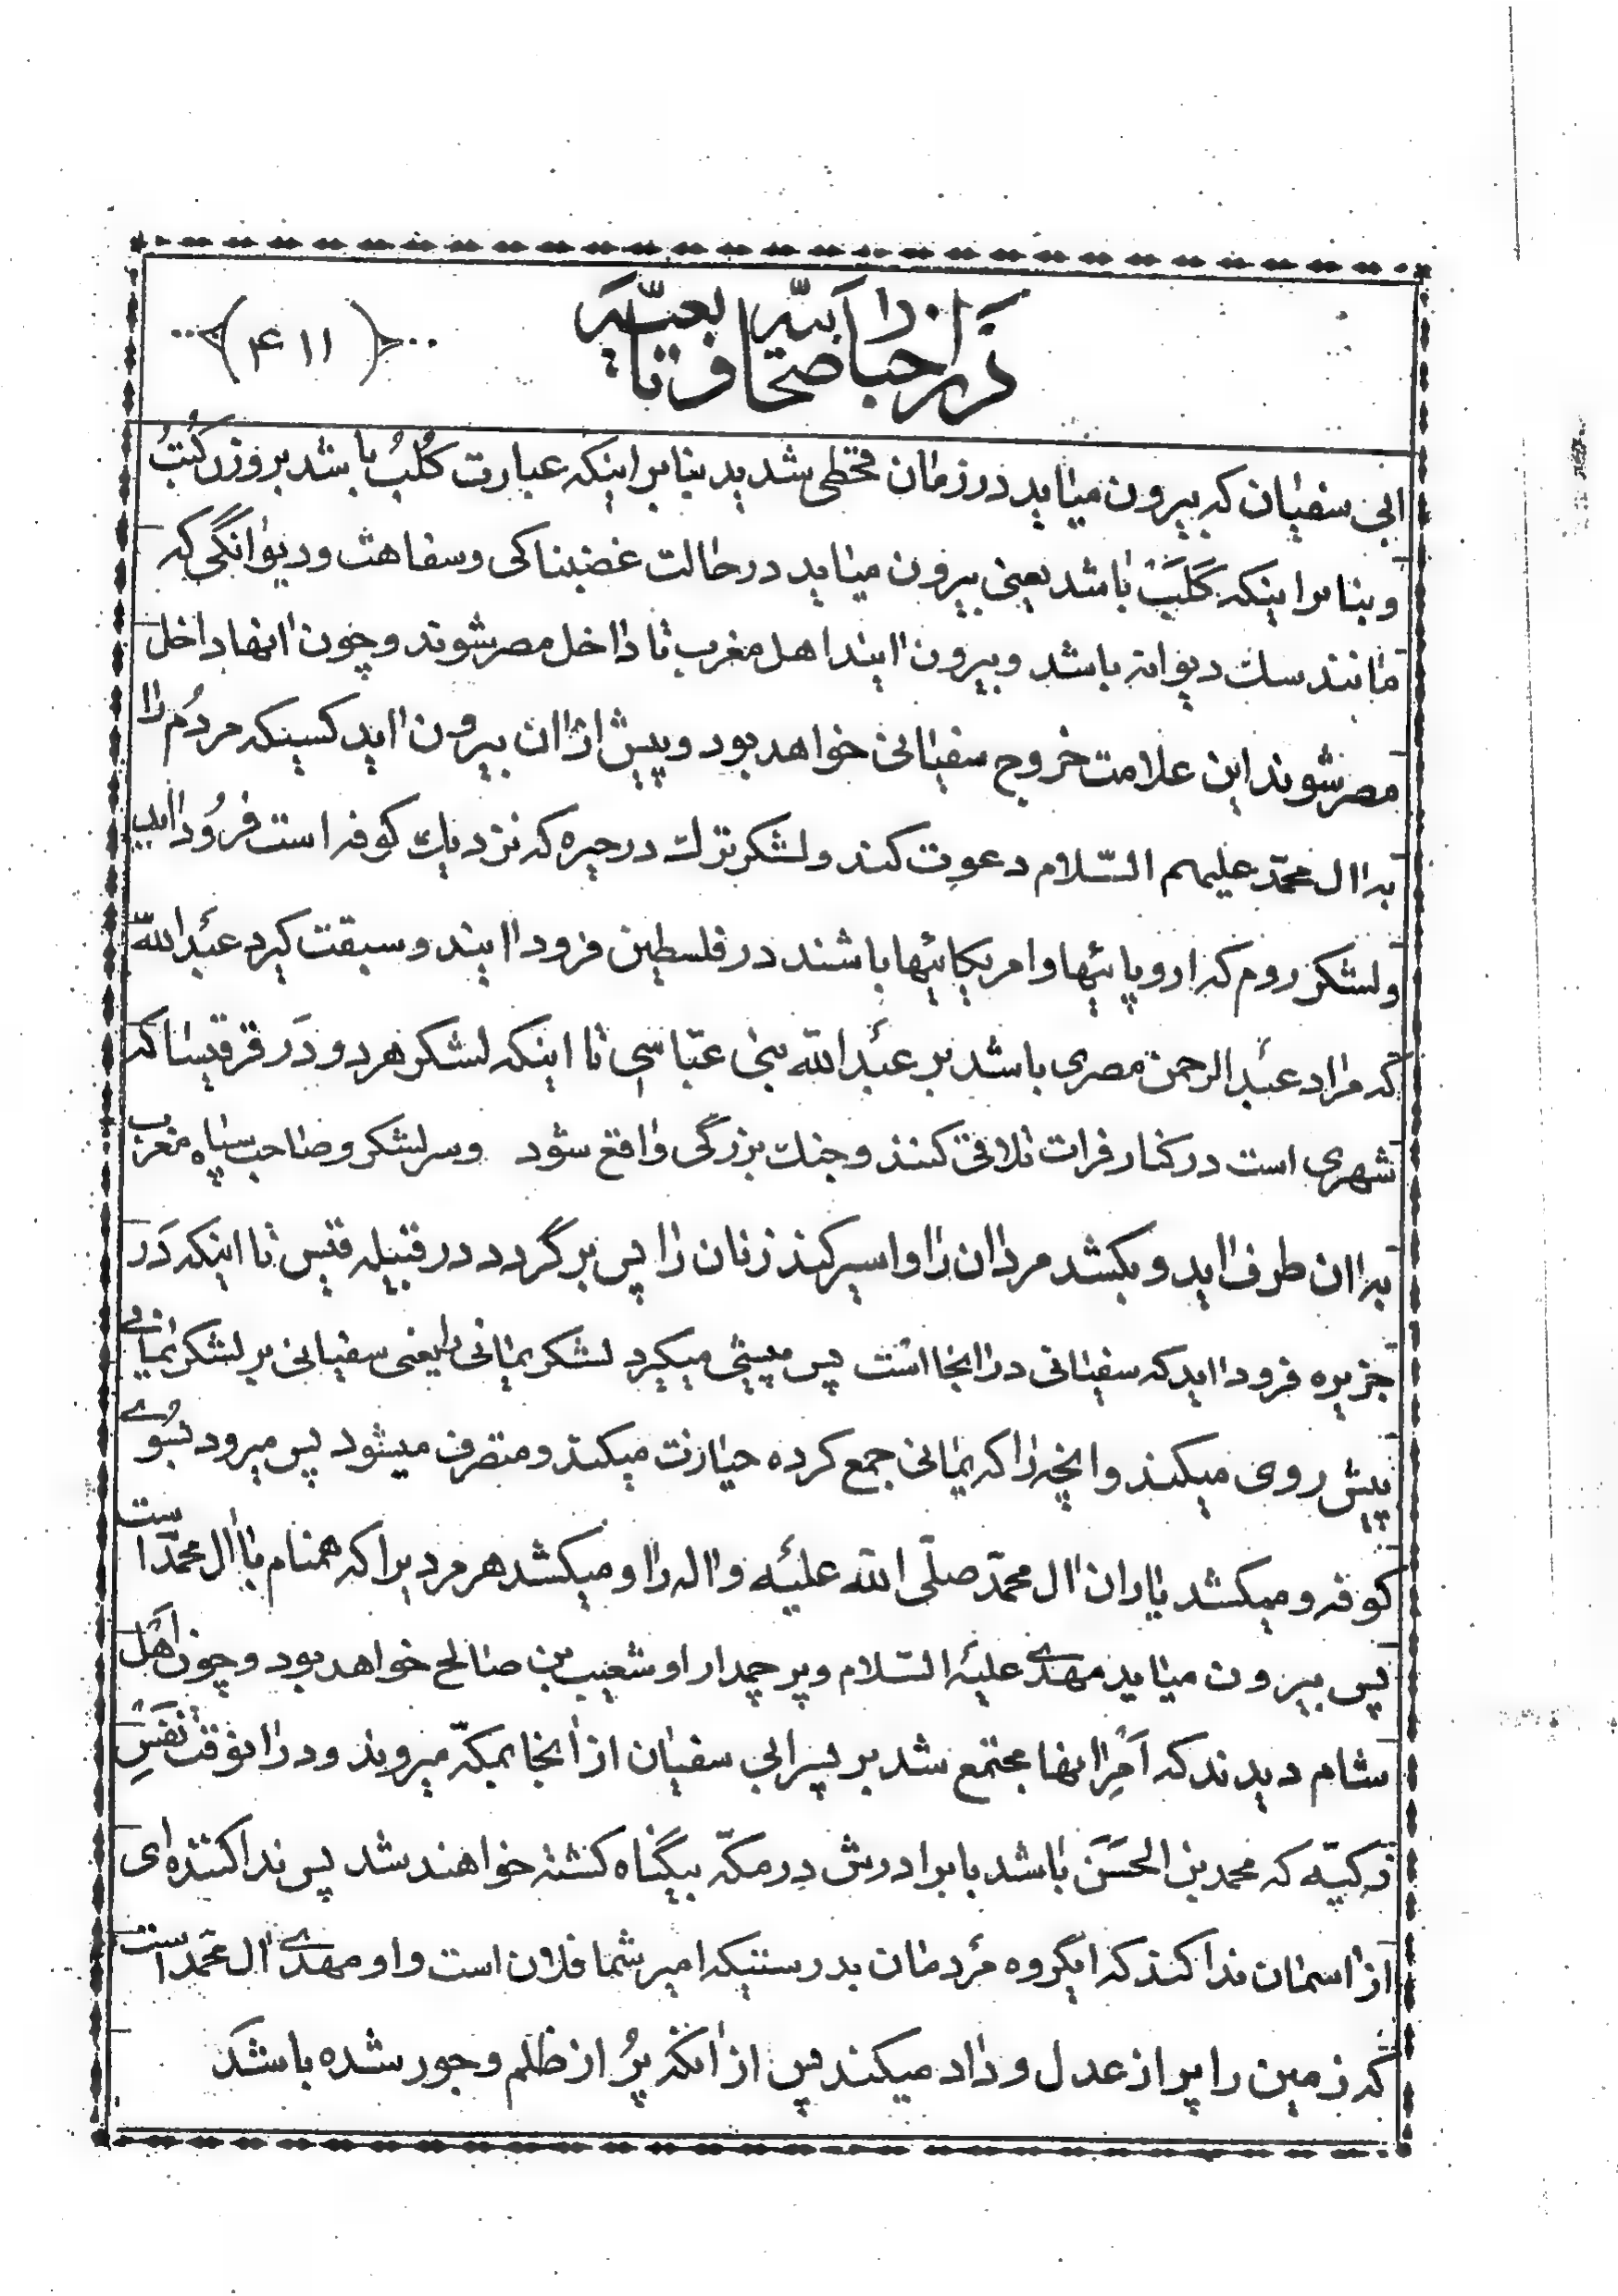 در اخبار صحابه و تابعین
(۴۱۱)
ابی سفیان که بیرون میاید در زمان قحطی شدید بنا بر اینکه عبارت کُلَبُ باشد بروزن کُتُبُ
و بنا بر اینکه کَلَبَ باشد یعنی بیرون میاید در حالت غضبناکی و سفاهت و دیوانگی که
مانند سك دیوانه باشد و بیرون ایند اهل مغرب تا داخل مصر شوند و چون انها داخل
مصر شوند این علامت خروج سفیانی خواهد بود و پیش از ان بیرون اید کسیکه مردُم را
به ال محمّد علیهم السّلام دعوت کند و لشکر ترك در حیره که نزدیك کوفه است فروُد اید
و لشکر روم که اروپائیها و امریکائیها باشند در فلسطین فرود ایند و سبقت گیرد عبدالله
که مراد عبدالرحمن مصری باشد بر عبدالله بنی عبّاسی تا اینکه لشکر هر دو دَر قرقیسا که
شهری است در کنار فرات تلاقی کنند و جنك بزرگی واقع شود و سر لشکر و صاحب سپاه مغرب
به ان طرف اید و بکشد مردان را و اسیر کند زنان را پس برگردد در قبیله قیس تا اینکه دَر
جزیره فرود اید که سفیانی در انجا است پس پیشی میگیرد لشکر یمانی را یعنی سفیانی بر لشکر یمانی
پیش روی میکند و انچه را که یمانی جمع کرده حیازت میکند و متصرف میشود پس میرود بسُوی
کوفه و میکشد یاران ال محمّد صلّی الله علیه و اله را و میکشد هر مردیرا که همنام با ال محمّد است
پس بیرون میاید مهدی علیه السّلام و پرچمدار او شعیب بن صالح خواهد بود و چون اَهَل
شام دیدند که اَمرِ انها مجتمع شد بر پسر ابی سفیان از انجا بمکّه میروند و در انوقت نَفسِ
زکیّه که محمد بن الحَسَن باشد با برادرش در مکّه بیگناه کشته خواهند شد پس ندا کننده ای
از اسمان ندا کند که ایگروه مَردمان بدرستیکه امیر شما فلان است و او مهدی ال محمّد است
که زمین را پر از عدل و داد میکند پس از انکه پرُ از ظلم و جور شده باشد